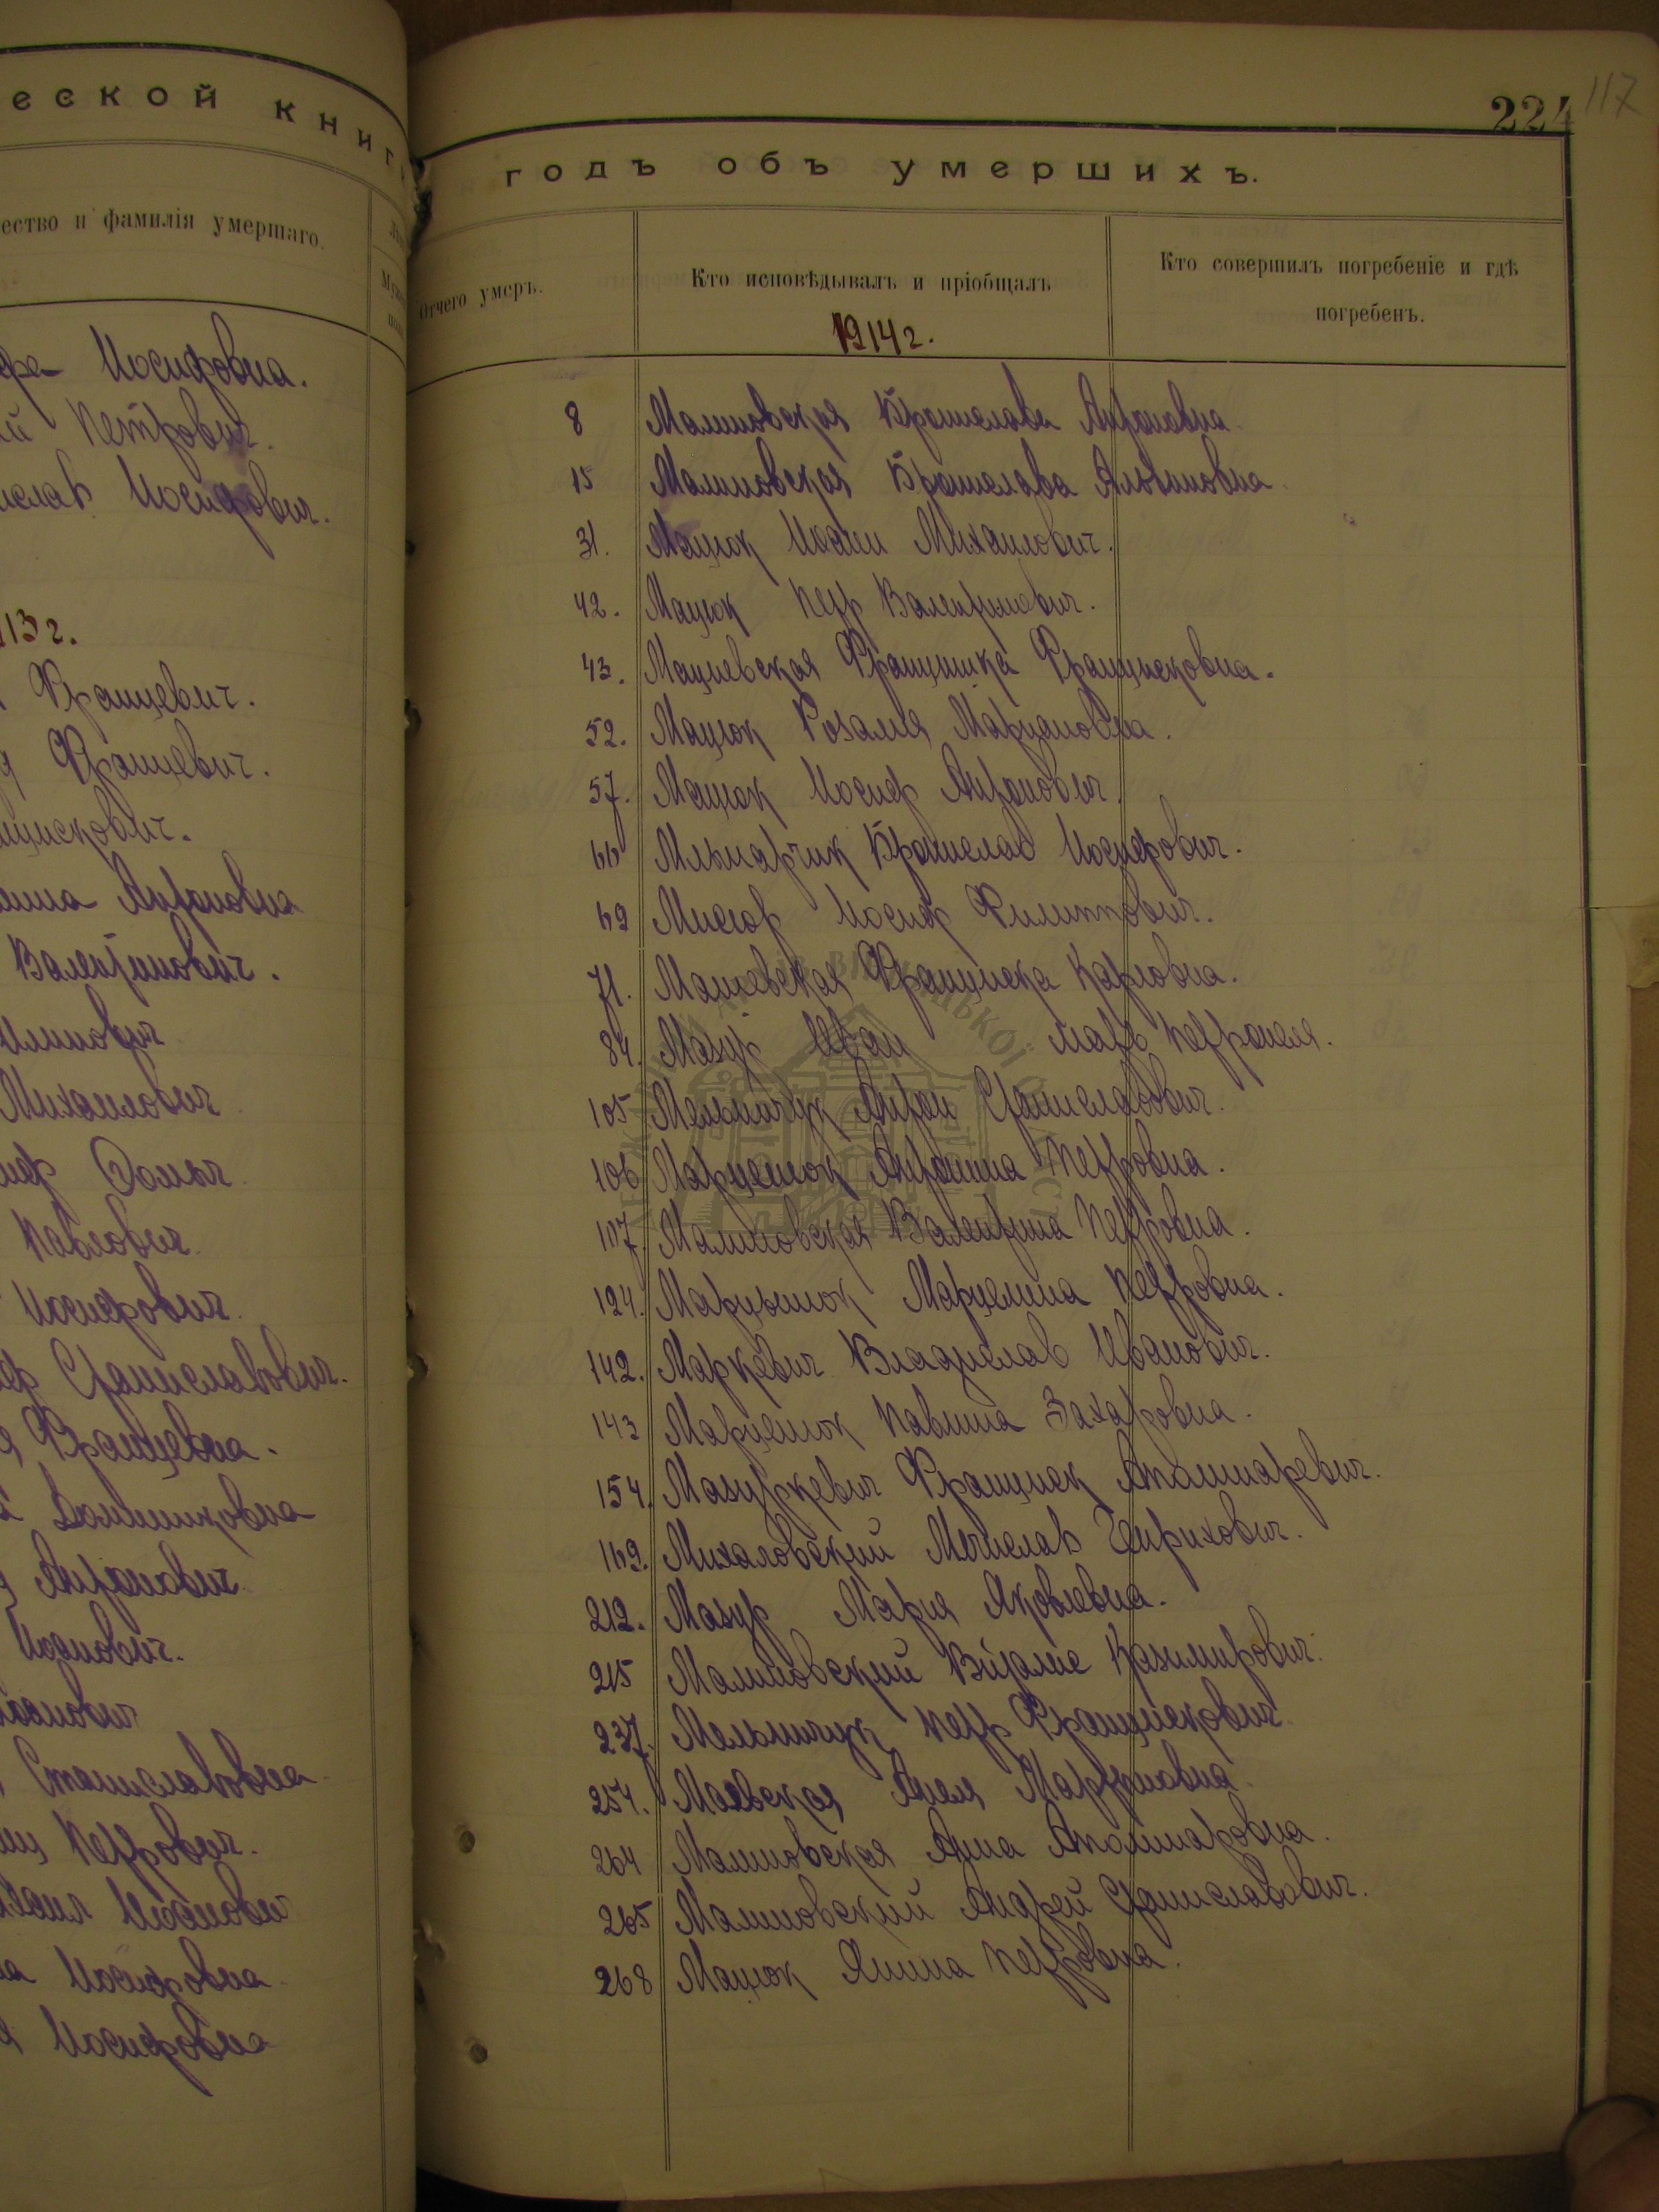 еской книг
ество и фамилія умершаго.
Иосифовна.
й Петрович.
ислав Иосифович.
113 г.
Францевич.
Францевич.
нцискович.
Антоновна
Валентинович.
Михаилович
Павлович
Иосифович.
ф Станиславович.
Францевна.
Доминиковна
Антонович
Иоанович.
Станиславовна
Петрович.
Иосифовна
Иосифовна
224
117
годъ объ умершихъ.
Отчего умеръ.
Кто исповѣдывалъ и пріобщалъ
Кто совершилъ погребеніе и гдѣ
погребенъ.
1914 г.
8 Малиновская Бронислава Антоновна.
15 Малиновская Бронислава Альбиновна
31. Мацюк Иоан Михаилович.
42. Мацюк Петр Валентинович.
43. Мациевская Францишка Францисковна.
52. Мацюк Розалия Марцановна.
57. Мацюк Иосиф Антонович.
66 Мльнарчик Бронислав Иосифович.
69 Мисюр Иосиф Филиппович.
71. Машевская Франциска Карловна.
84. Мазур Иван мать Петронеля.
105 Мельничук Антон Станиславович.
106 Марценюк Антонина Петровна.
107. Малиновская Валентина Петровна.
124. Марцынюк Марцелина Петровна.
142. Маркевич Владислав Иванович.
143 Марценюк Павлина Захаровна.
154. Мазуркевич Францишек Аполинаревич.
169. Михаловский Мечислав Генрихович.
212. Мазур Мария Яковлевна.
215 Малиновский Виталис Казимирович.
237. Мельничук Петр Францискович
254. Маевская Анеля Мартиновна.
264 Малиновская Анна Аполинаровна.
265 Малиновский Андрей Станиславович.
268 Мацюк Янина Петровна.